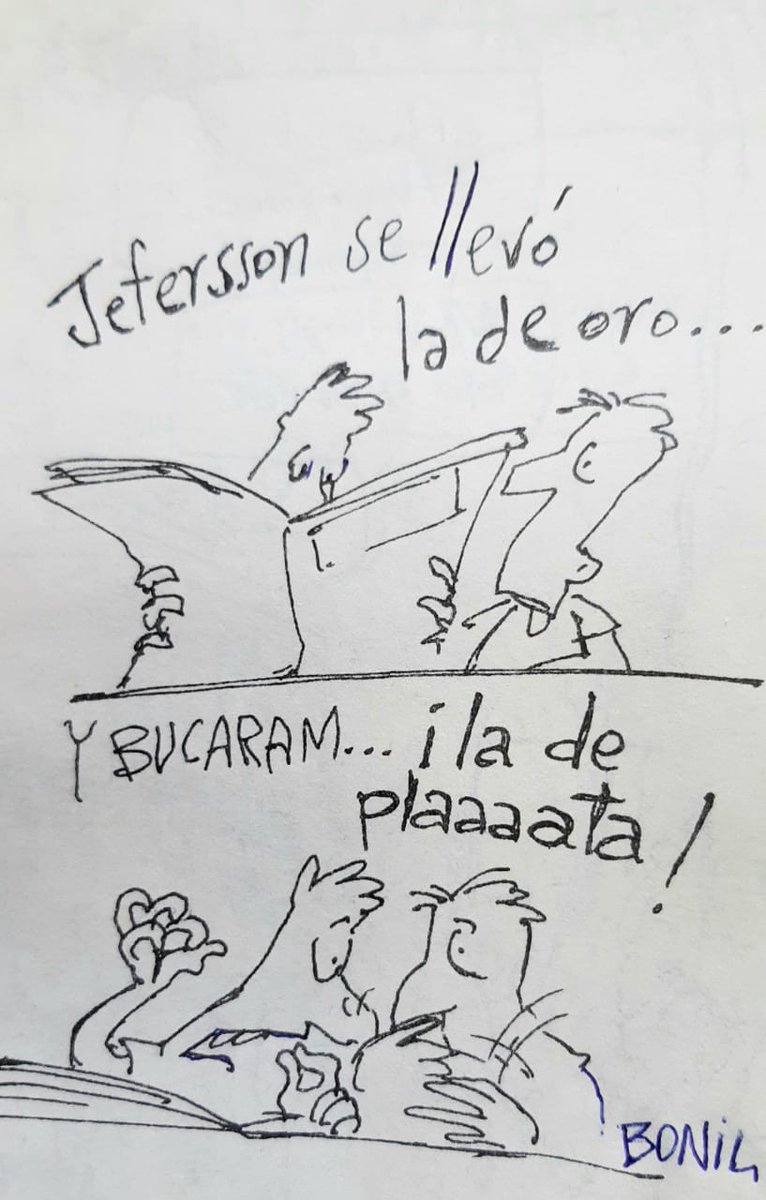 Jefersson se llevó
la de oro...
Y BUCARAM... ¡la de
plaaaata!
BONIL